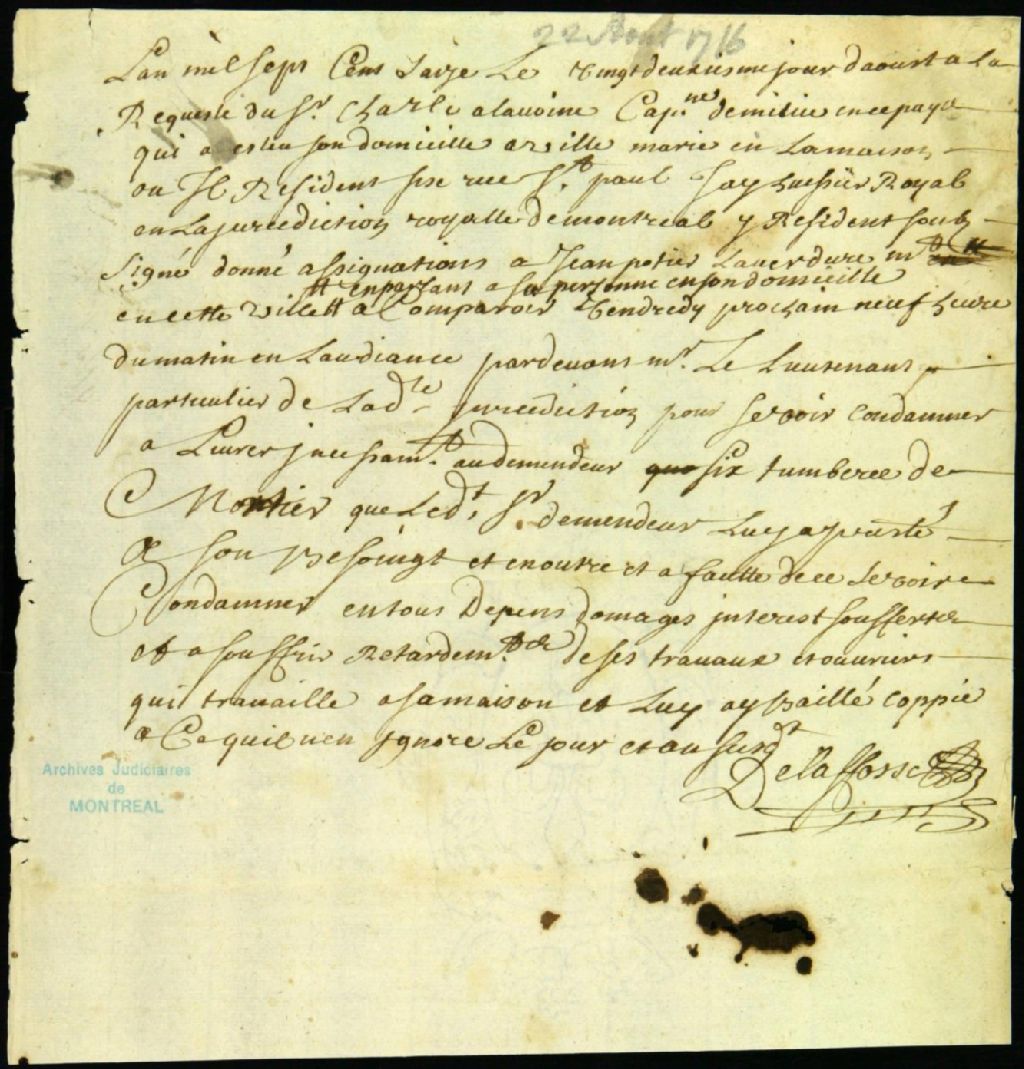 22 Aout 1716
Lan mil sept Cens Saize Le vingtdeuxiesme jour daoust a La
Requeste du Sr. Charle alauoine Capne. demilice en ce pays
qui a esleu son domicille a ville marie en Lamaison
ou Il Resident size rue St. paul Jay huissier Royal
en La jurediction royalle de montreal y Resident soub
Signé donné assignations a Jean potier Lauerdure md
tt en parlant a sa personne en son domicille
en cette ville tt a Comparoir Vendredy procham neuf heure
du matin en Laudiance pardeuans mr. Le Lieutenans
particulier de Ladte jurediction pour se voir Condamner
a Liurer jncessamt. au demendeur six tumberee de
Mortier que Ledt. Sr demendeur Luy a presté
a son Besoingt et en outre et a faulte de ce se voire
Condamner en tous Depens domages jnterest soufferts
et a souffrir Retardemt. de ses trauaux et ouuriers
qui trauaille a sa maison et Luy ay baillé coppie
a Ce quil nen jgnore Le jour et an susdt
Delafosse
Archives Judiciaires
de
MONTREAL